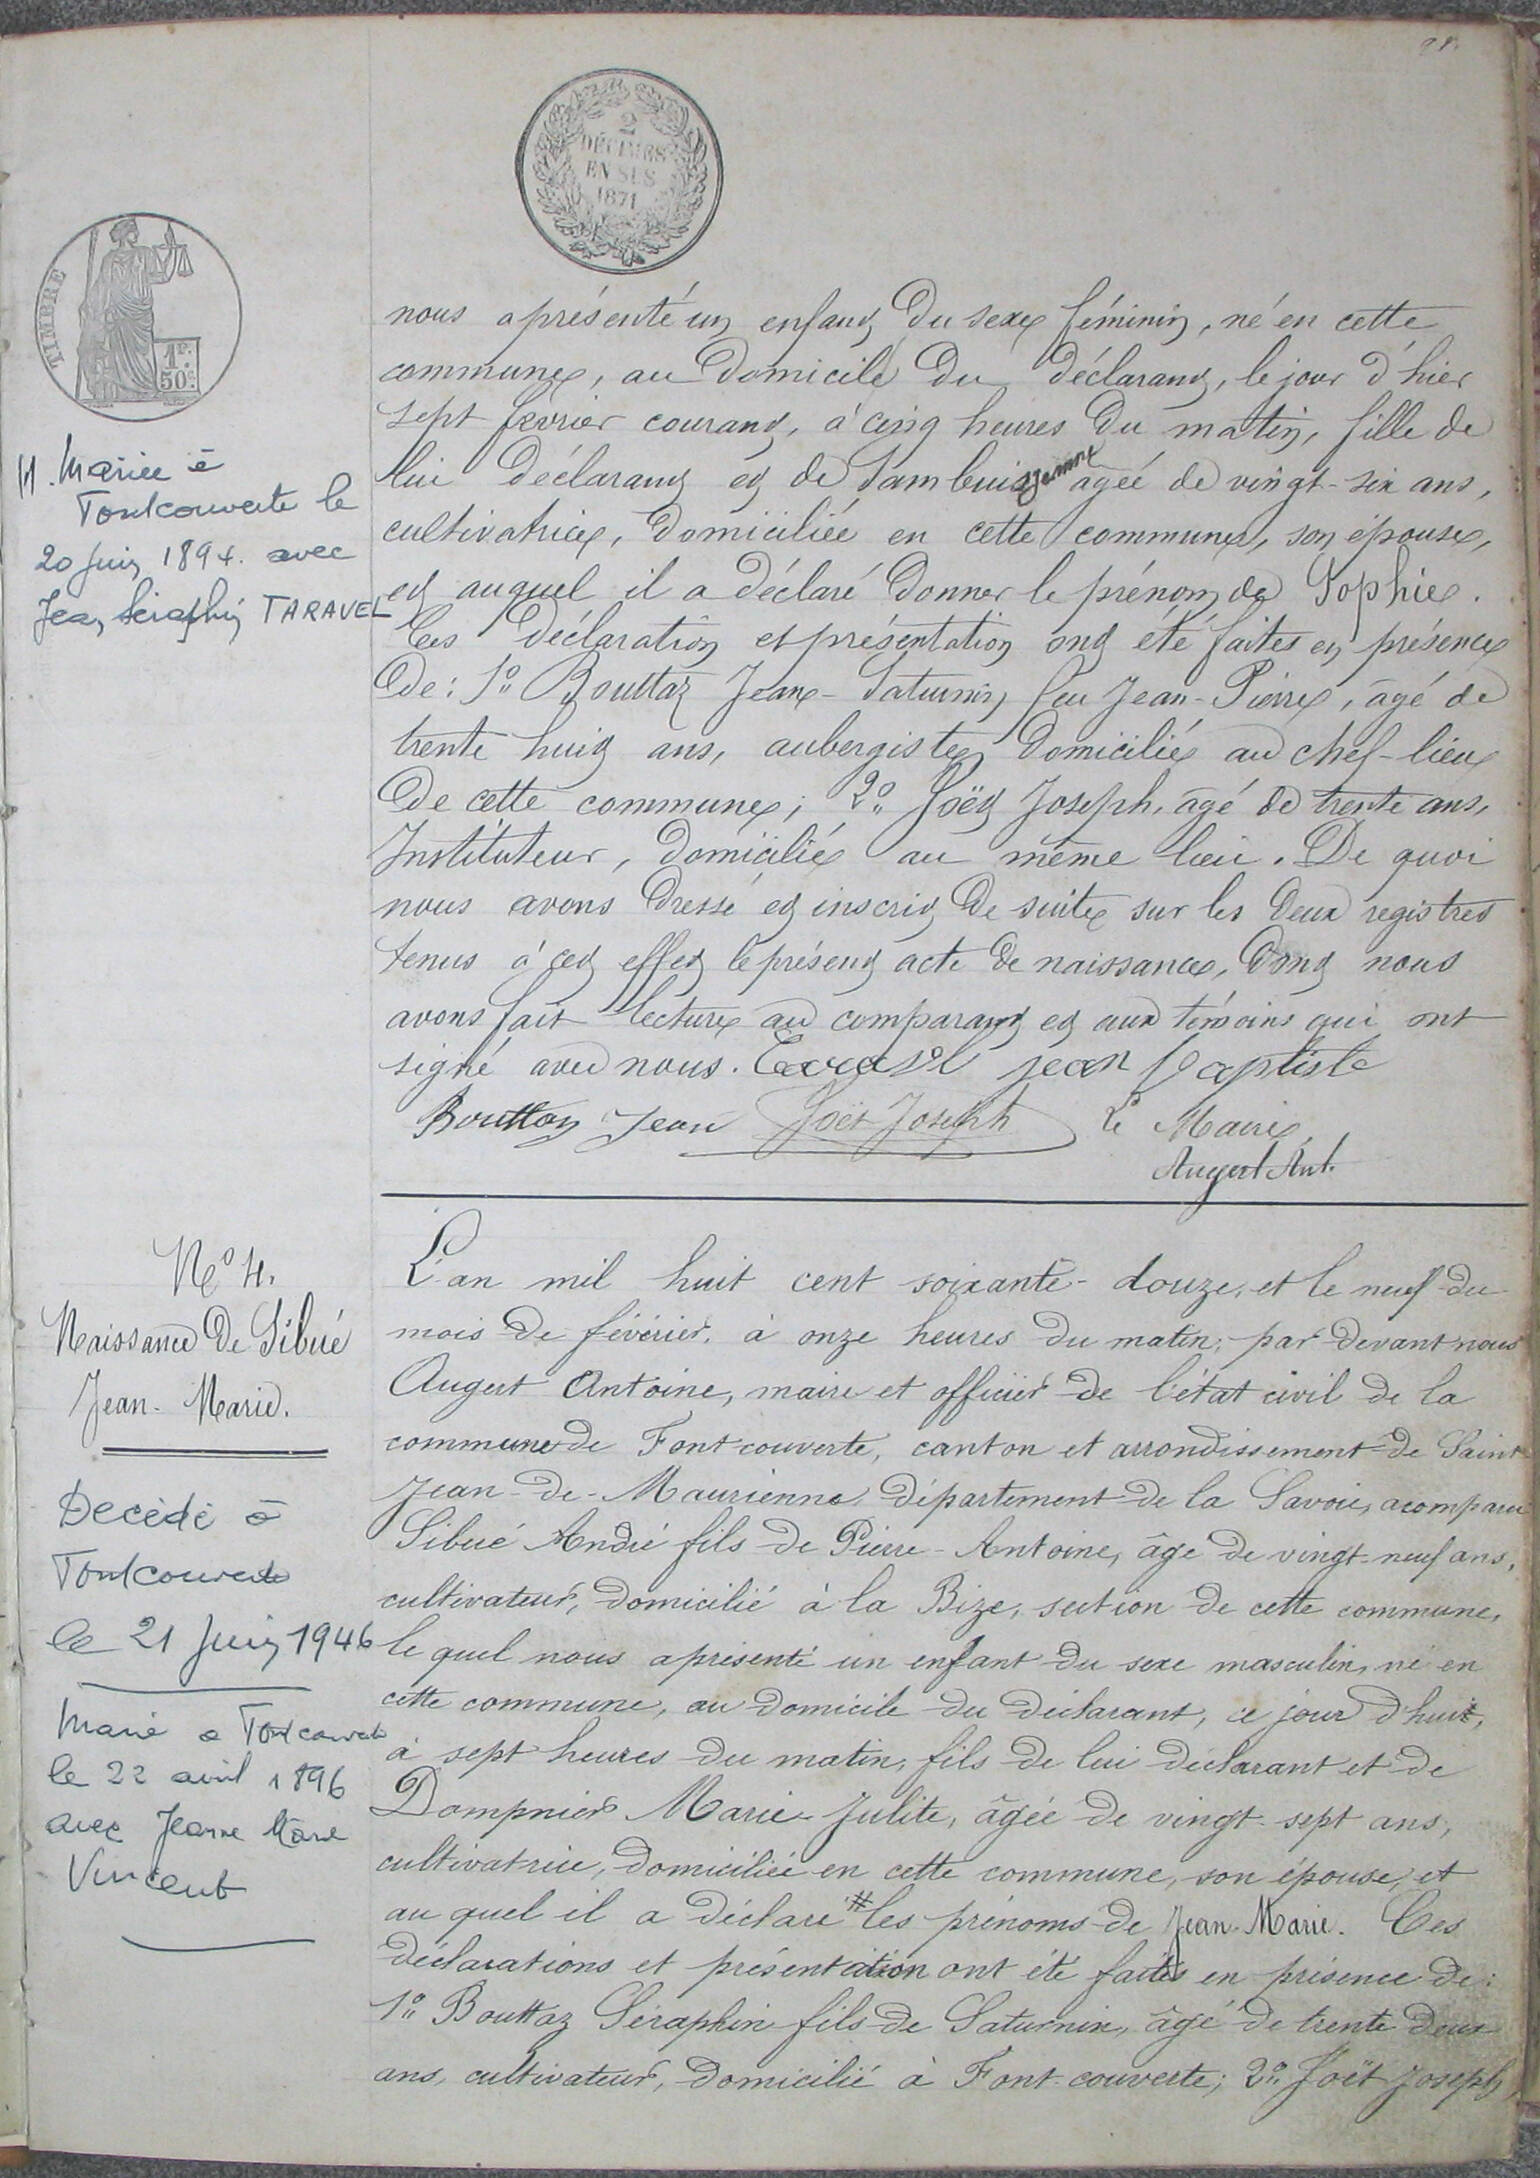 2
DÉCIMES
EN SUS
1871
TIMBRE
1F.
50c.
nous a présenté un enfant, du sexe féminin, né en cette
commune, au domicile du déclarant, le jour d'hier
sept février courant, à cinq heures du matin, fille de
lui déclarant et de Sambuis Jeanne âgée de vingt-six ans,
cultivatrice, domiciliée en cette commune, son épouse,
et auquel il a déclaré donner le prénom de Sophie.
Ces déclaration et présentation ont été faites en présence
de: 1° Bouttaz Jean-Saturnin, feu Jean-Pierre, âgé de
trente huit ans, aubergiste, domicilié au chef-lieu
de cette commune; 2° Joët Joseph, âgé de trente ans,
Instituteur, domicilié au même lieu. De quoi
nous avons dressé et inscrit de suite sur les deux registres
tenus à cet effet le présent acte de naissance, dont nous
avons fait lecture au comparant et aux témoins qui ont
signé avec nous. jean baptiste
Bouttaz Jean Joët Joseph Le Maire,
Augert Ant.
H. Mariée à
Fontcouverte le
20 juin 1894. avec
Jean Séraphin TARAVEL
N° 4.
Naissance de Sibué
Jean-Marie.
Décédé à
Fontcouverte
le 21 juin 1946
Marié à Fontcouverte
le 22 avril 1896
avec Jeanne Marie
Vincent
L'an mil huit cent soixante-douze, et le neuf du
mois de février, à onze heures du matin; par devant nous
Augert Antoine, maire et officier de l'état civil de la
commune de Font couverte, canton et arrondissement de Saint
Jean-de-Maurienne, département de la Savoie, a comparu
Sibué André fils de Pierre-Antoine, âgé de vingt-neuf ans,
cultivateur, domicilié à la Bize, section de cette commune,
le quel nous a présenté un enfant du sexe masculin, né en
cette commune, au domicile du déclarant, ce jour d'hui,
à sept heures du matin, fils de lui déclarant et de
Dompnier Marie-Julite, âgée de vingt-sept ans,
cultivatrice, domiciliée en cette commune, son épouse, et
au quel il a déclaré # les prénoms de Jean-Marie. Ces
déclarations et présentation ont été faites en présence de:
1° Bouttaz Séraphin fils de Saturnin, âgé de trente deux
ans, cultivateur, domicilié à Font-couverte; 2° Joët Joseph,